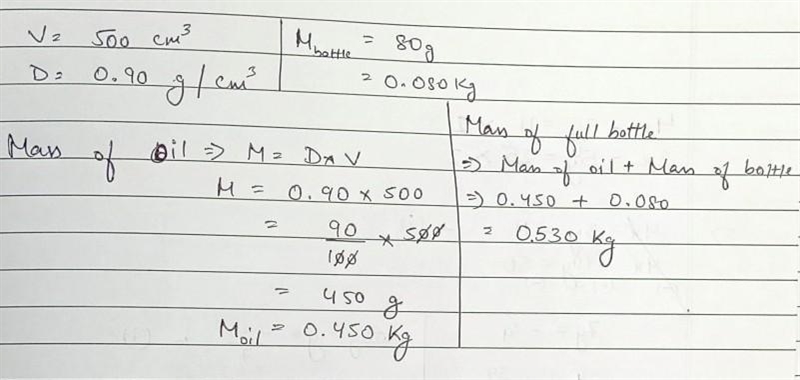 V = 500 cm³
D = 0.90 g/cm³
M bottle = 80g
= 0.080 Kg
Mass of Oil ⇒ M = D × V
M = 0.90 × 500
= 90/100 × 500
= 450 g
M oil = 0.450 Kg
Mass of full bottle
⇒ Mass of oil + Mass of bottle
⇒ 0.450 + 0.080
= 0.530 Kg